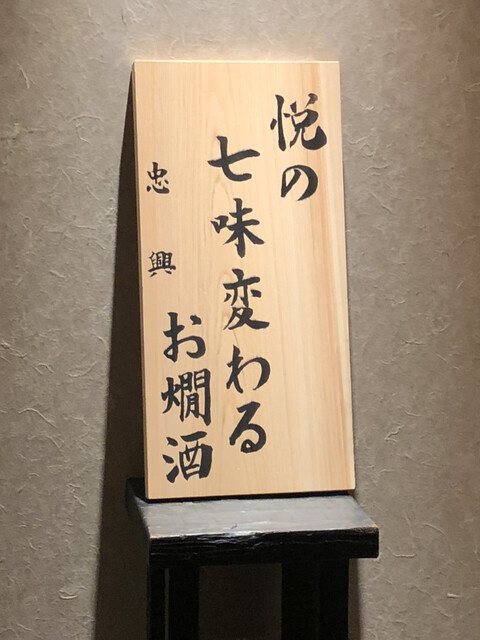 悦の
七味変わる
お燗酒
忠興